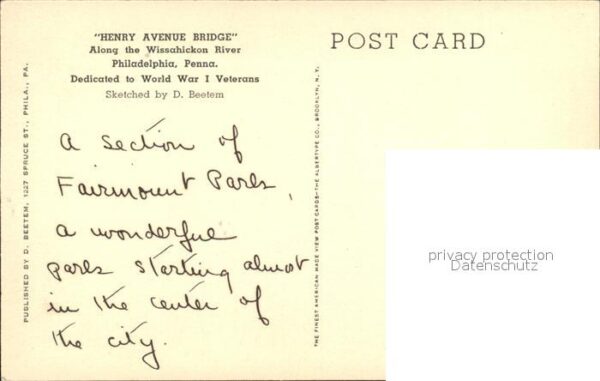 "HENRY AVENUE BRIDGE"
Along the Wissahickon River
Philadelphia, Penna.
Dedicated to World War I Veterans
Sketched by D. Beetem
A section of
Fairmount Park,
a wonderful
park starting almost
in the center of
the city.
PUBLISHED BY D. BEETEM, 1227 SPRUCE ST., PHILA., PA.
THE FINEST AMERICAN MADE VIEW POST CARDS—THE ALBERTYPE CO., BROOKLYN, N. Y.
POST CARD
privacy protection
Datenschutz